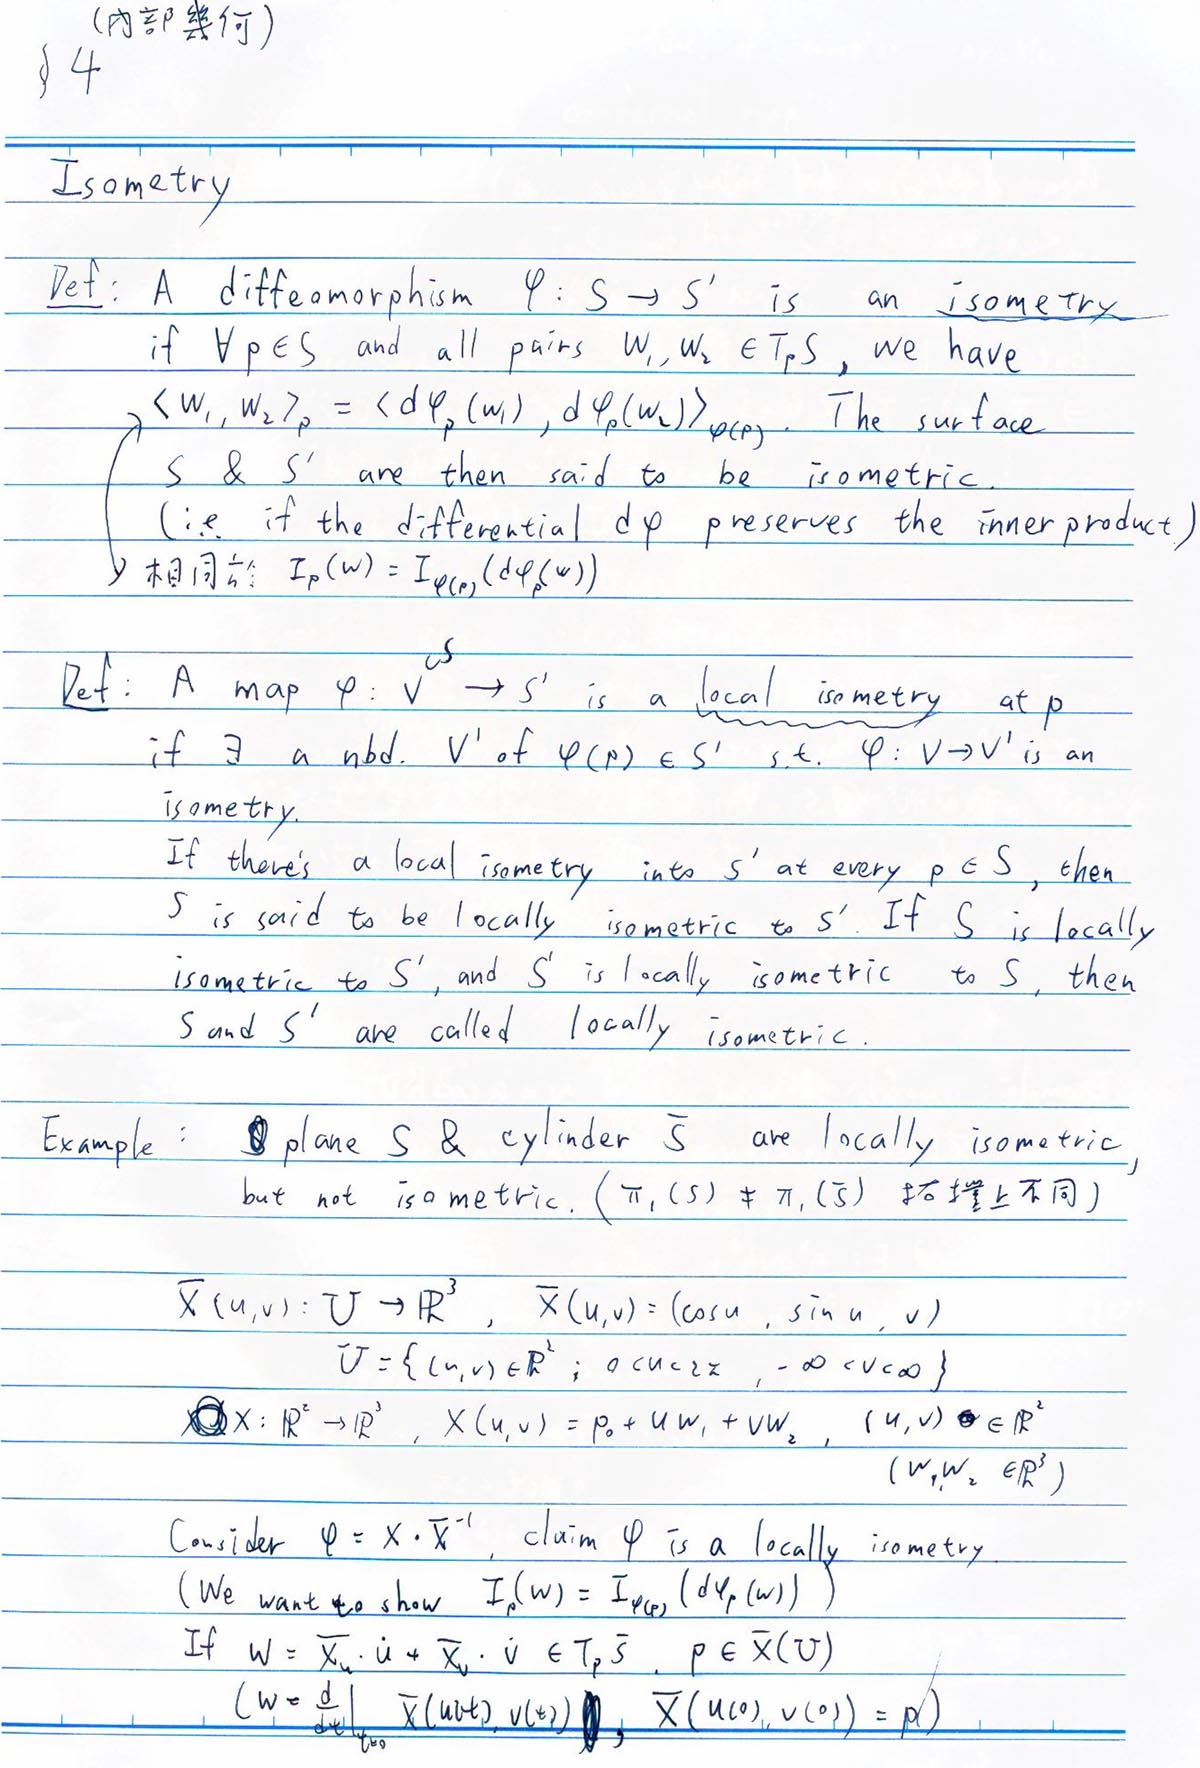 (內部幾何)
§ 4
Isometry
Def: A diffeomorphism φ: S → S' is an isometry
if ∀p∈S and all pairs W₁, W₂ ∈ TₚS, we have
<W₁, W₂>ₚ = <dφₚ(w₁), dφₚ(w₂)>_φ(p). The surface
S & S' are then said to be isometric.
(i.e. if the differential dφ preserves the inner product)
相同於 Iₚ(w) = I_φ(p)(dφₚ(w))
Def: A map φ: V⊂S → S' is a local isometry at p
if ∃ a nbd. V' of φ(p) ∈ S' s.t. φ: V→V' is an
isometry.
If there's a local isometry into S' at every p ∈ S, then
S is said to be locally isometric to S'. If S is locally
isometric to S', and S' is locally isometric to S, then
S and S' are called locally isometric.
Example: plane S & cylinder S̄ are locally isometric,
but not isometric. (π₁(S) ≠ π₁(S̄) 拓撲上不同)
X̄(u,v): U → ℝ³, X̄(u,v) = (cos u, sin u, v)
U = {(u,v)∈ℝ²; 0<u<2π, -∞<v<∞}
X: ℝ² → ℝ³, X(u,v) = p₀ + uw₁ + vw₂, (u,v) ∈ ℝ²
(w₁,w₂ ∈ℝ³)
Consider φ = X · X̄⁻¹, claim φ is a locally isometry.
(We want to show Iₚ(w) = I_φ(p)(dφₚ(w)))
If W = X̄ᵤ · u̇ + X̄ᵥ · v̇ ∈ TₚS̄, p ∈ X̄(U)
(W = d/dt|ₜ₌₀ X̄(u(t), v(t)), X̄(u(0), v(0)) = p)